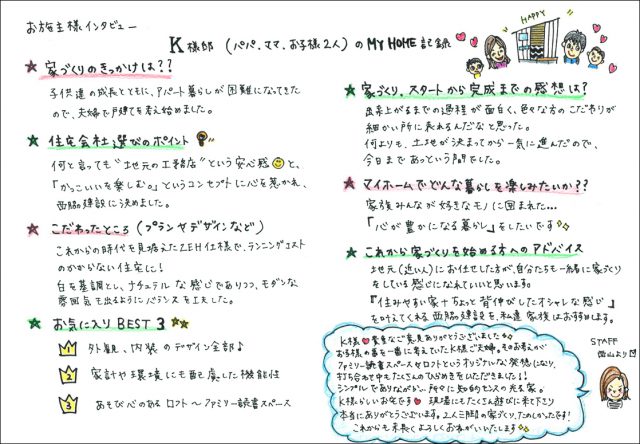 お施主様インタビュー
K様邸 (パパ.ママ.お子様2人) の MY HOME 記録
HAPPY
★ 家づくりのきっかけは??
子供達の成長とともに、アパート暮らしが困難になってきた
ので、夫婦で戸建てを考え始めました。
★ 住宅会社選びのポイント
何と言っても"地元の工務店"という安心感と、
「かっこいいを楽しむ。」というコンセプトに心を惹かれ、
西脇建設に決めました。
★ こだわったところ (プランやデザインなど)
これからの時代を見据えたZEH仕様で、ランニングコスト
のかからない住宅に!
白を基調とし、ナチュラルな感じでありつつ、モダンな
雰囲気も出るようにバランスを工夫した。
★ お気に入り BEST 3
1 外観、内装のデザイン全部♪
2 家計や環境にも配慮した機能性
3 あそび心のある ロフト〜ファミリー読書スペース
★ 家づくり、スタートから完成までの感想は?
出来上がるまでの過程が面白く、色々な方のこだわりが
細かい所に表れるんだなと思った。
何よりも、土地が決まってから一気に進んだので、
今日まであっという間でした。
★ マイホームでどんな暮らしを楽しみたいか??
家族みんなが好きなモノに囲まれた…
「心が豊かになる暮らし」をしたいです
★ これから家づくりを始める方へのアドバイス
地元(近い人)にお任せした方が、自分たちも一緒に家づくり
をしている感じになれていいと思います。
『住みやすい家+ちょっと背伸びしたオシャレな感じ』
を叶えてくれる 西脇建設を私達家族はお勧めします。
K様♥貴重なご意見ありがとうございました
お子様の事を一番に考えていたK様ご夫婦。そのお考えが
ファミリー読書スペースとロフトというオリジナルな発想になり、
打ち合わせ中もたくさんのひらめきをいただきました!!
シンプルでありながら…所々に知的センスの光る家。
K様らしいお宅です♥ 現場にもたくさん遊びに来て下さり
本当にありがとうございます。2人三脚の家づくり、たのしかったです!
これからも末長くよろしくお願いいたします
STAFF